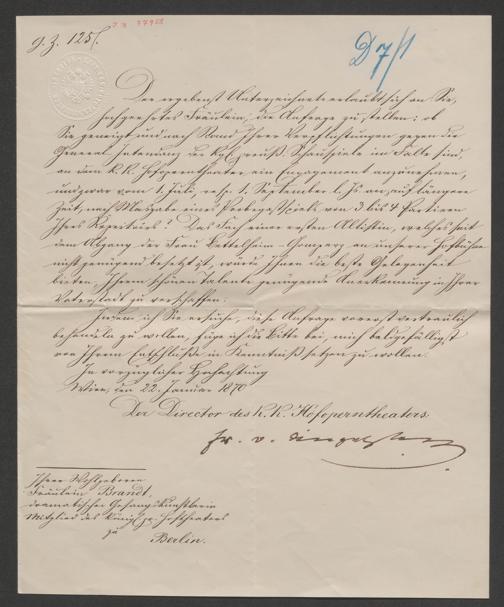 J. N. 37958
g. Z. 125/.
D 7/1
Der ergebenst Unterzeichnete erlaubt sich an Sie,
hochgeehrtes Fräulein, die Anfrage zu stellen: ob
Sie geneigt und nach Stand Ihrer Verpflichtungen gegen die
General Intendanz der Kgl. preuß. Schauspiele im Falle sind,
an dem k. k. Hofoperntheater ein Engagement anzunehmen,
und zwar vom 1. Juli, resp. 1. September l. Js. an, auf längere
Zeit, nach Maßgabe eines Probegastspiels von 3 bis 4 Partieen
Ihres Repertoirs? Das Fach einer ersten Altistin, welches seit
dem Abgang der Frau Bettelheim-Gomperz an unserer Hofbühne
nicht genügend besetzt ist, würde Ihnen die beste Gelegenheit
bieten, Ihrem schönen Talente genügende Anerkennung in Ihrer
Vaterstadt zu verschaffen.
Indem ich Sie ersuche, diese Anfrage vorerst vertraulich
behandeln zu wollen, füge ich die Bitte bei, mich baldgefälligst
von Ihrem Entschluße in Kenntniß setzen zu wollen.
In vorzüglicher Hochachtung
Wien, den 22. Januar 1870
Der Director des K. K. Hofoperntheaters
Ihrer Wohlgeboren
Fräulein Brandt,
dramatischen Gesangs Künstlerin
Mitglied des Königl. pr. Hoftheaters
zu
Berlin.